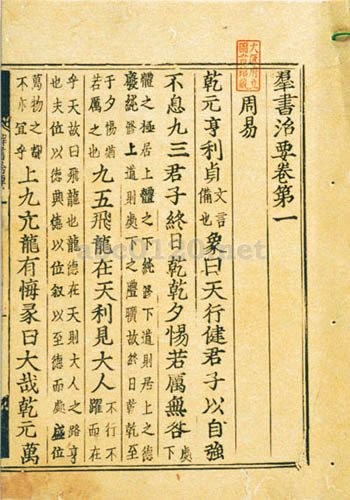 羣書治要卷第一
周易
乾元亨利貞文言備也象曰天行健君子以自強
不息九三君子終日乾乾夕惕若厲無咎處下
體之極居上體之下純脩下道則居上之德
廢純脩上道則處下之禮曠故終日乾乾至
于夕惕猶若厲也九五飛龍在天利見大人不行不躍而在
乎天故曰飛龍也龍德在天則大人之路亨
也夫位以德興德以位叙以至德而處盛位
萬物之覩不亦宜乎上九亢龍有悔彖曰大哉乾元萬